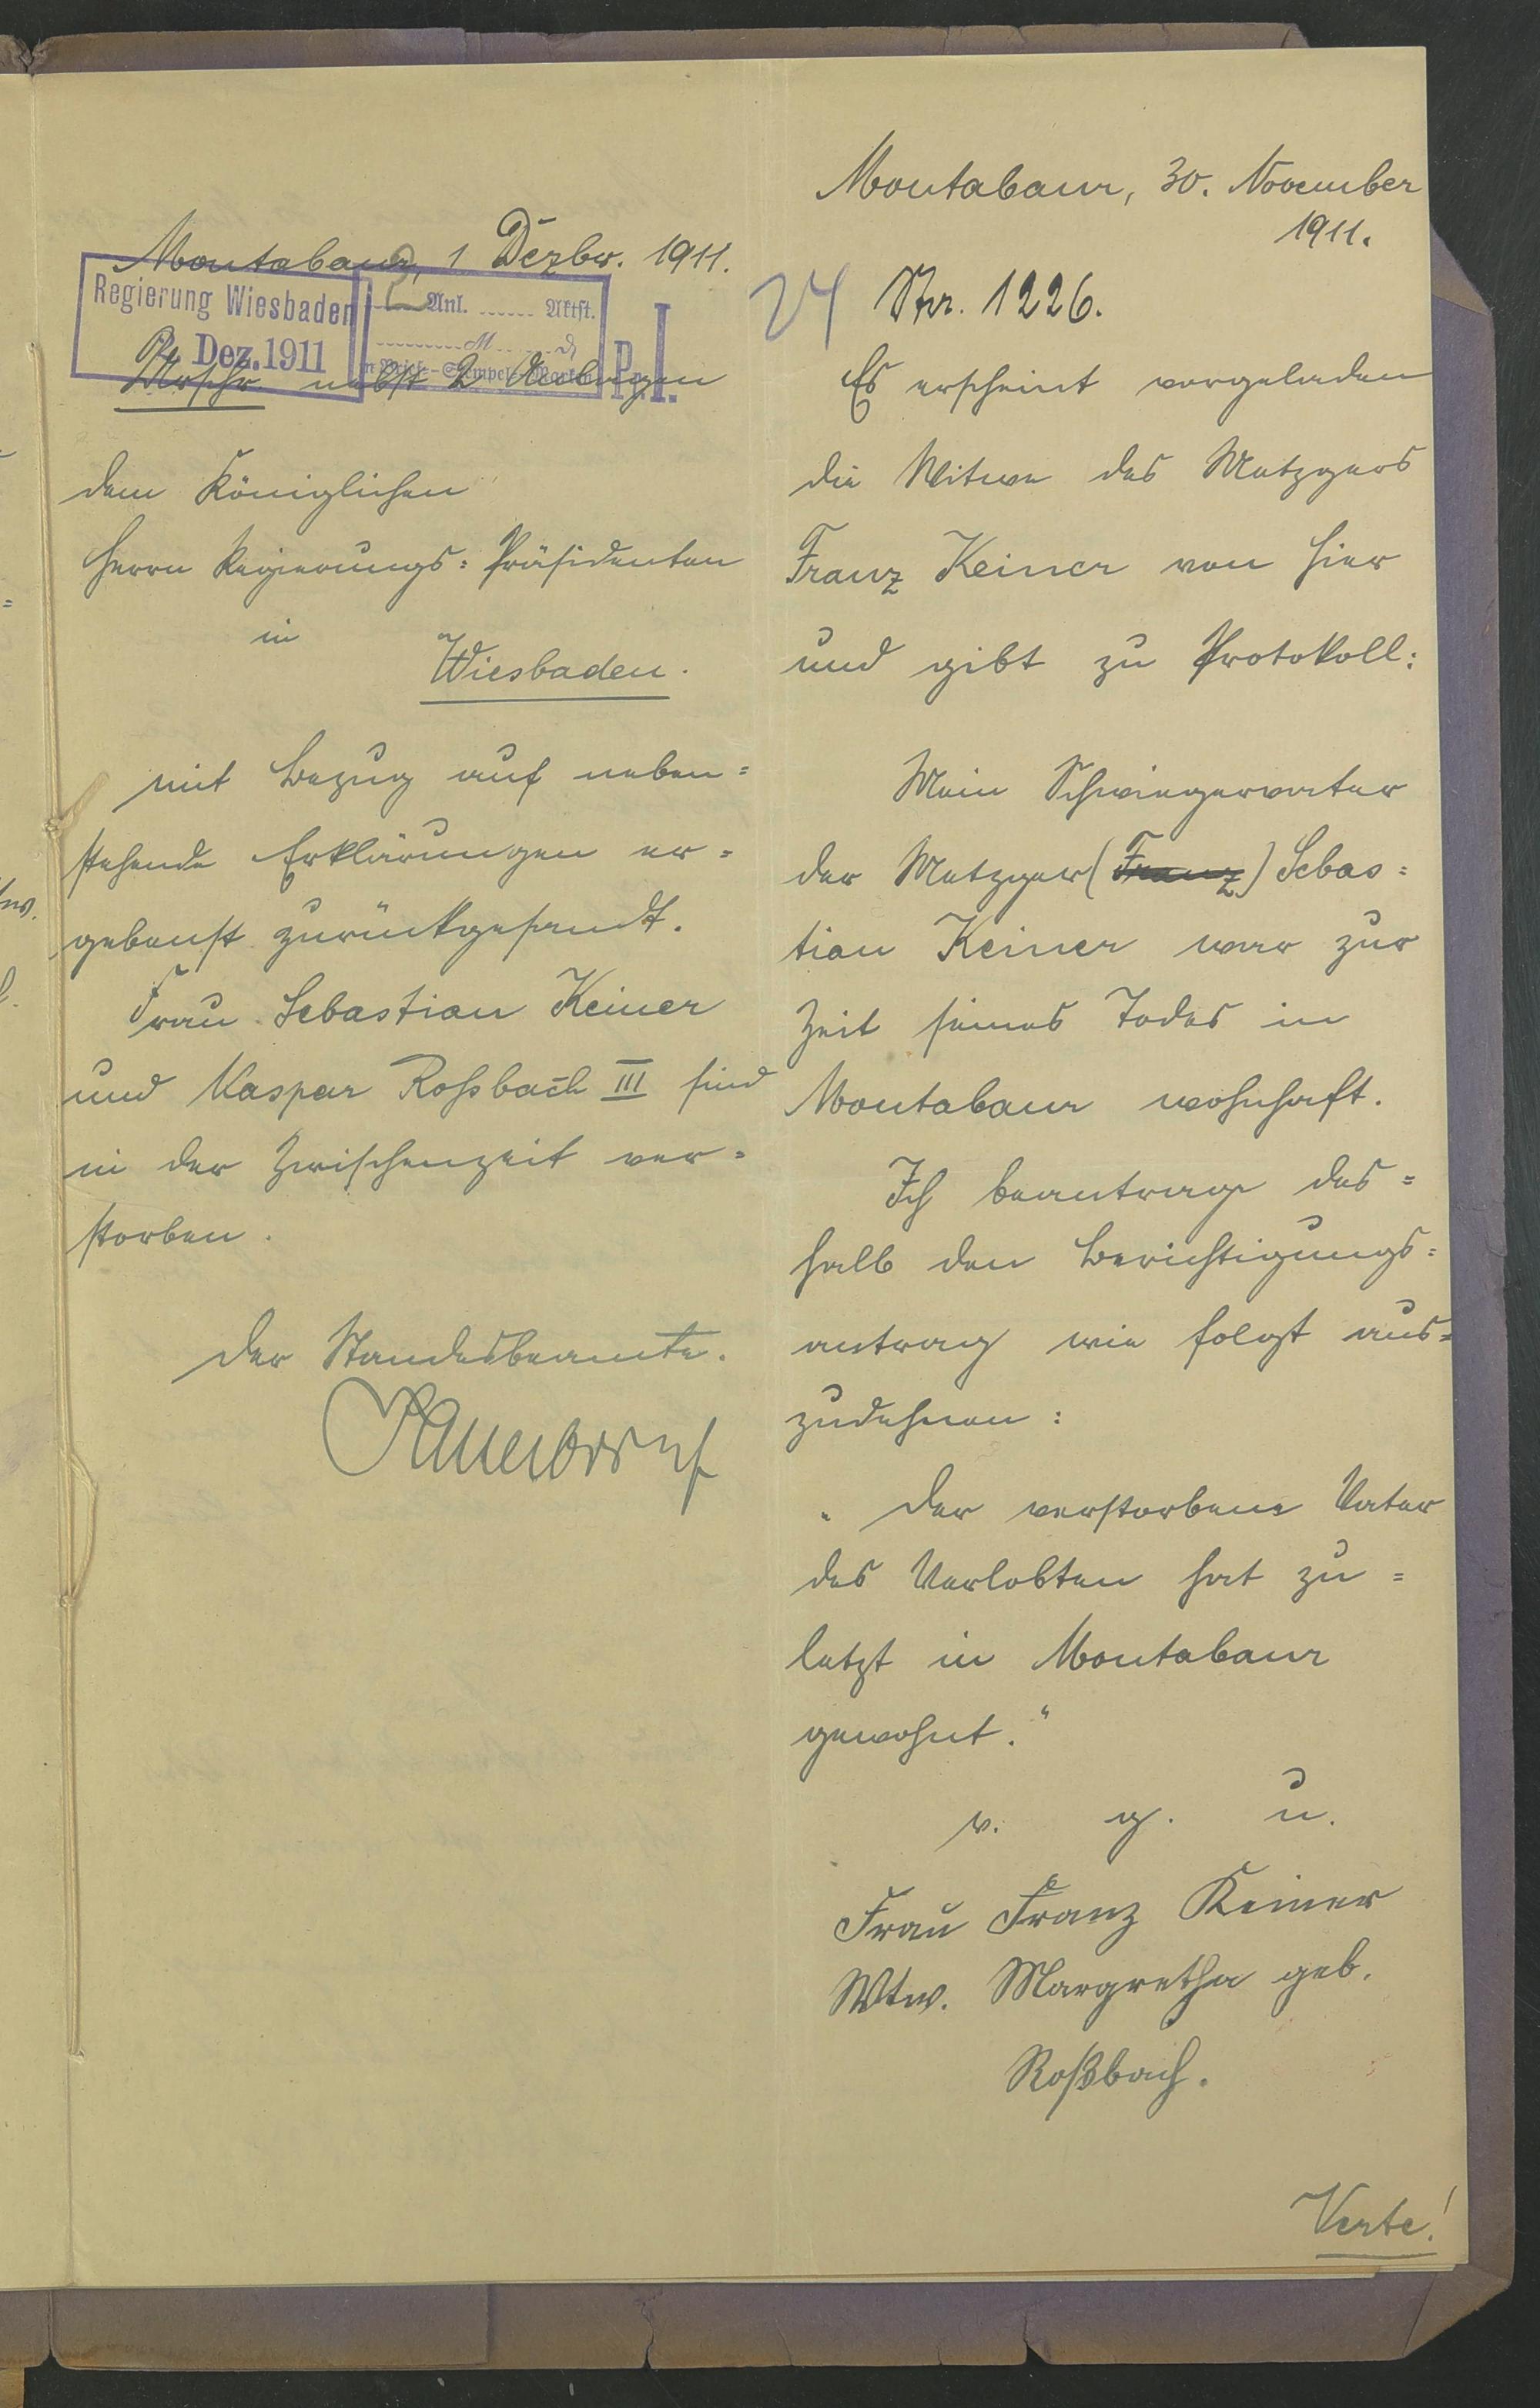 Montabaur, 1 Dezbr. 1911.
Regierung Wiesbaden
Dez. 1911
Anl. Aktst.
M
P. I.
Urschr. nebst 2 Anlagen
dem Königlichen
Herrn Regierungs=Präsidenten
in
Wiesbaden.
mit Bezug auf neben=
stehende Erklärungen er=
gebenst zurückgesandt.
Frau Sebastian Keiner
und Kaspar Roßbach III sind
in der Zwischenzeit ver=
storben.
Der Standesbeamte.
Montabaur, 30. November
1911.
24 Nr. 1226.
Es erscheint vorgeladen
die Witwe des Metzgers
Franz Keiner von hier
und gibt zu Protokoll:
Mein Schwiegervater
der Metzger (Franz) Sebas=
tian Keiner war zur
Zeit seines Todes in
Montabaur wohnhaft.
Ich beantrage des=
halb den Berichtigungs=
antrag wie folgt aus=
zudehnen:
„Der verstorbene Vater
des Verlobten hat zu=
letzt in Montabaur
gewohnt.“
v. g. u.
Frau Franz Keiner
Wtw. Margretha geb.
Roßbach.
Verte!